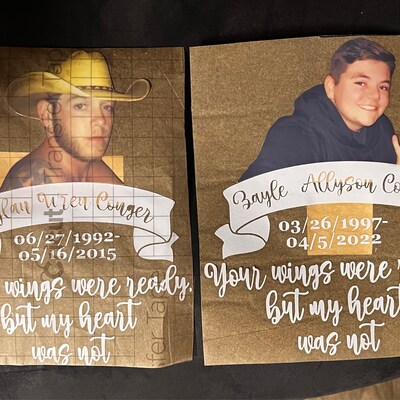 Wren Conger
06/27/1992-
05/16/2015
wings were ready,
but my heart
was not
Allyson Co
03/26/1997-
04/5/2022
Your wings were
but my heart
was not